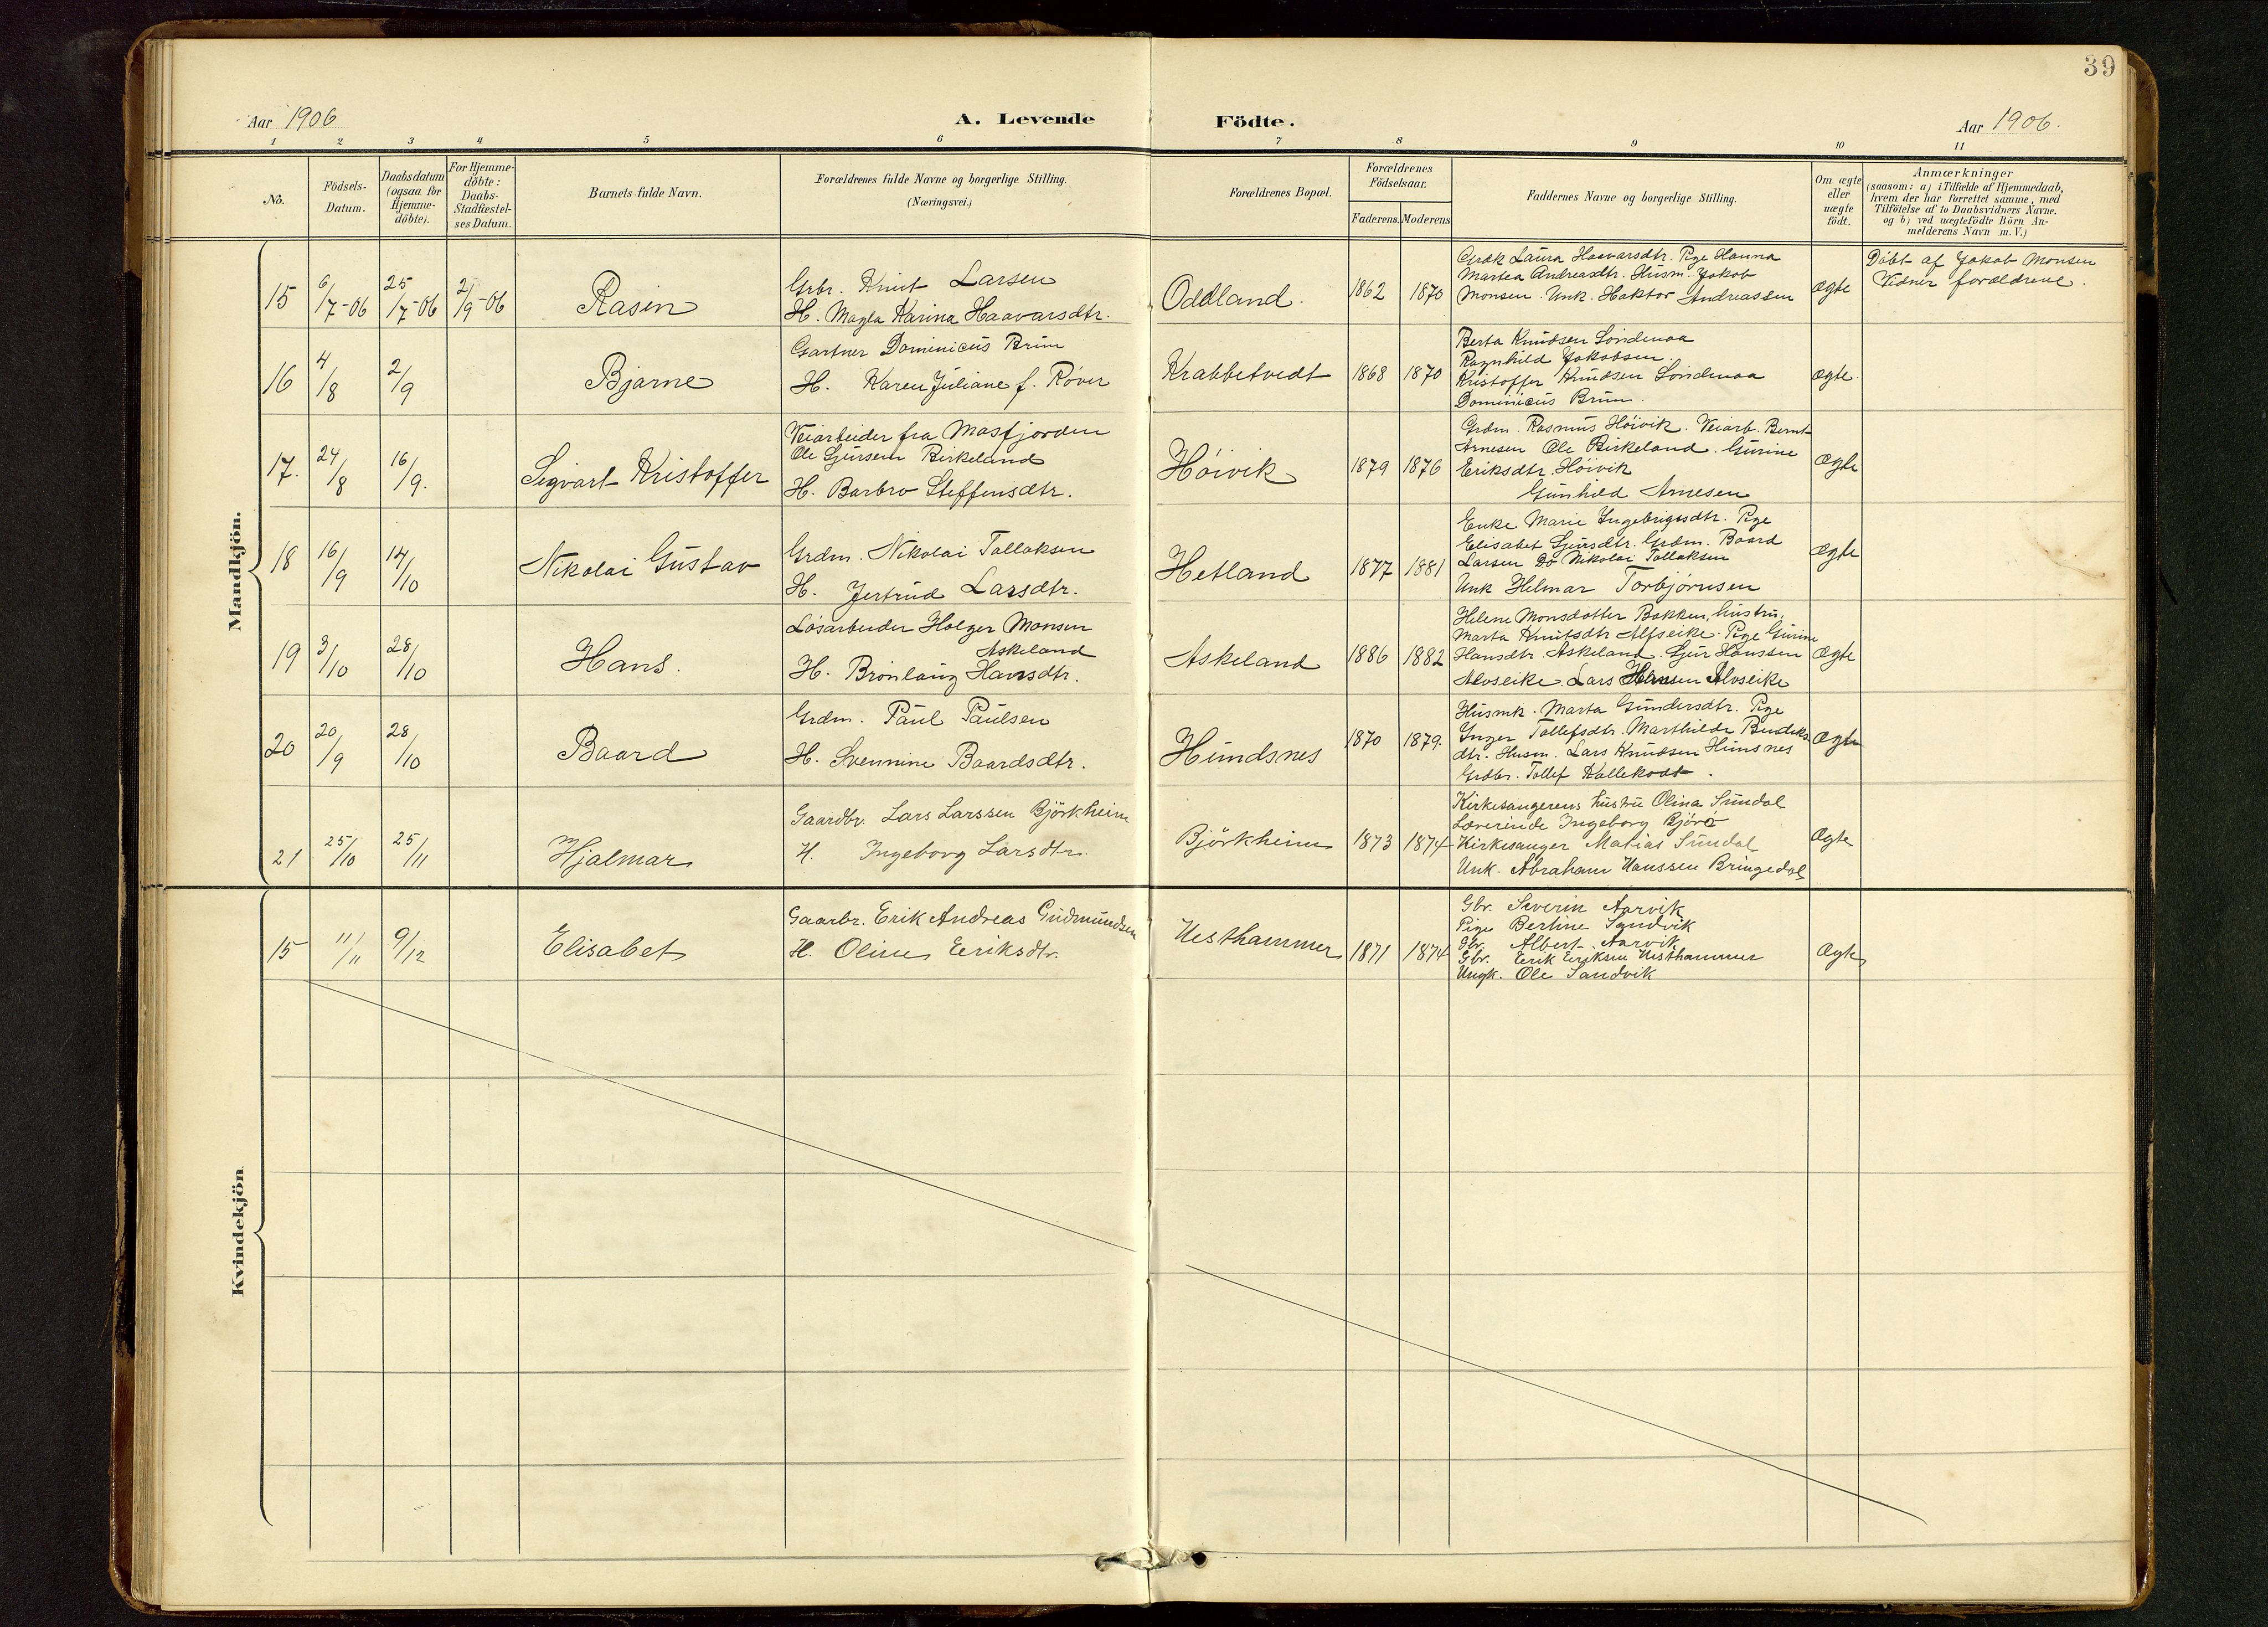 39
Aar 1906
A. Levende Födte.
Aar 1906.
1 2 3 4 5 6 7 8 9 10 11
No.
Födsels-
Datum.
Daabsdatum
(ogsaa for
Hjemme-
döbte).
For Hjemme-
döbte:
Daabs-
Stadfæstel-
ses Datum.
Barnets fulde Navn.
Forældrenes fulde Navne og borgerlige Stilling.
(Næringsvei.)
Forældrenes Bopæl.
Forældrenes
Födselsaar.
Faderens. Moderens
Faddernes Navne og borgerlige Stilling.
Om ægte
eller
uægte
födt.
Anmærkninger
(saasom: a) i Tilfælde af Hjemmedaab,
hvem der har forrettet samme, med
Tilföielse af to Daabsvidners Navne.
og b) ved uægtefödte Börn An-
melderens Navn m. V.)
Mandkjön.
15
6/7-06
25/7-06
2/9-06
Rasin
Grbr. Knut Larsen
H. Magla Karina Haavarsdtr.
Oddland.
1862
1870
Grdk Laura Haavarsdtr. Pge Hanna
Martea Andreasdtr. Husm. Jakob
Monsen. Unk. Haktor Andreassen
Ægte
Döbt af Jakob Monsen
Vidner forældrene.
16
4/8
2/9
Bjarne
Gartner Dominicus Brun
H. Karen Juliane f. Røver
Krabbetvedt
1868
1870
Berta Knudsen Söndenaa
Ragnhild Jakobsen.
Kristoffer Knudsen Söndenaa
Dominicus Brun.
Ægte.
17.
24/8
16/9.
Sigvart Kristoffer
Veiarbeider fra Masfjorden
Ole Gjursen Birkeland
H. Barbro Steffensdtr.
Höivik
1879
1876
Grdm. Rasmus Höivik. Veiarb. Bernt
Arnesen Ole Birkeland. Gurine
Eriksdtr. Höivik
Gunhild Arnesen
Ægte
18
16/9
14/10
Nikolai Gustav
Grdm. Nikolai Tollaksen
H. Jertrud Larsdtr.
Hetland
1877
1881
Enke Marie Ingebrigtsdtr. Pge
Elisabet Gjursdtr. Grdm. Baard
Larsen Do Nikolai Tollaksen
Unk Helmar Torbjörnsen
Ægte
19
3/10
28/10
Hans.
Lösarbeider Holger Monsen
Askeland
H. Brönlaug Hansdtr.
Askeland
1886
1882
Helene Monsdotter Bakken, hustru,
Marta Knutsdtr Alfseike. Pge Gurine
Hansdtr. Askeland. Gjur Hanssen
Alvseike. Lars Hansen Alvseike
Ægte
20
20/9
28/10
Baard
Grdm. Paul Paulsen
H. Svennine Baardsdtr.
Hundsnes
1870
1879.
Husmk. Marta Gundersdtr. Pge
Inger Tollefsdtr. Marthilde
dtr. Husm. Lars Knudsen Hunsnes
Grdbr. Tollef
Ægte
21
25/10
25/11
Hjalmar
Gaardbr. Lars Larssen Björkheim
H. Ingeborg Larsdtr.
Björkheim
1873
1874
Kirkesangerens hustru Olina Sundal
Lærerinde Ingeborg Björö
Kirkesanger Matias Sundal
Unk. Abraham Hanssen Bringedal
Ægte
Kvindekjön
15
11/11
9/12
Elisabet
Gaarbr. Erik Andreas Gudmundsen
H. Oline Eeriksdtr.
Uesthammer
1871
1874
Gbr. Severin Aarvik
Pige Bertine Sandvik
Gbr. Albert Aarvik
Gbr. Eerik Eeriksen Uesthammer
Ungk. Ole Sandvik
Ægte